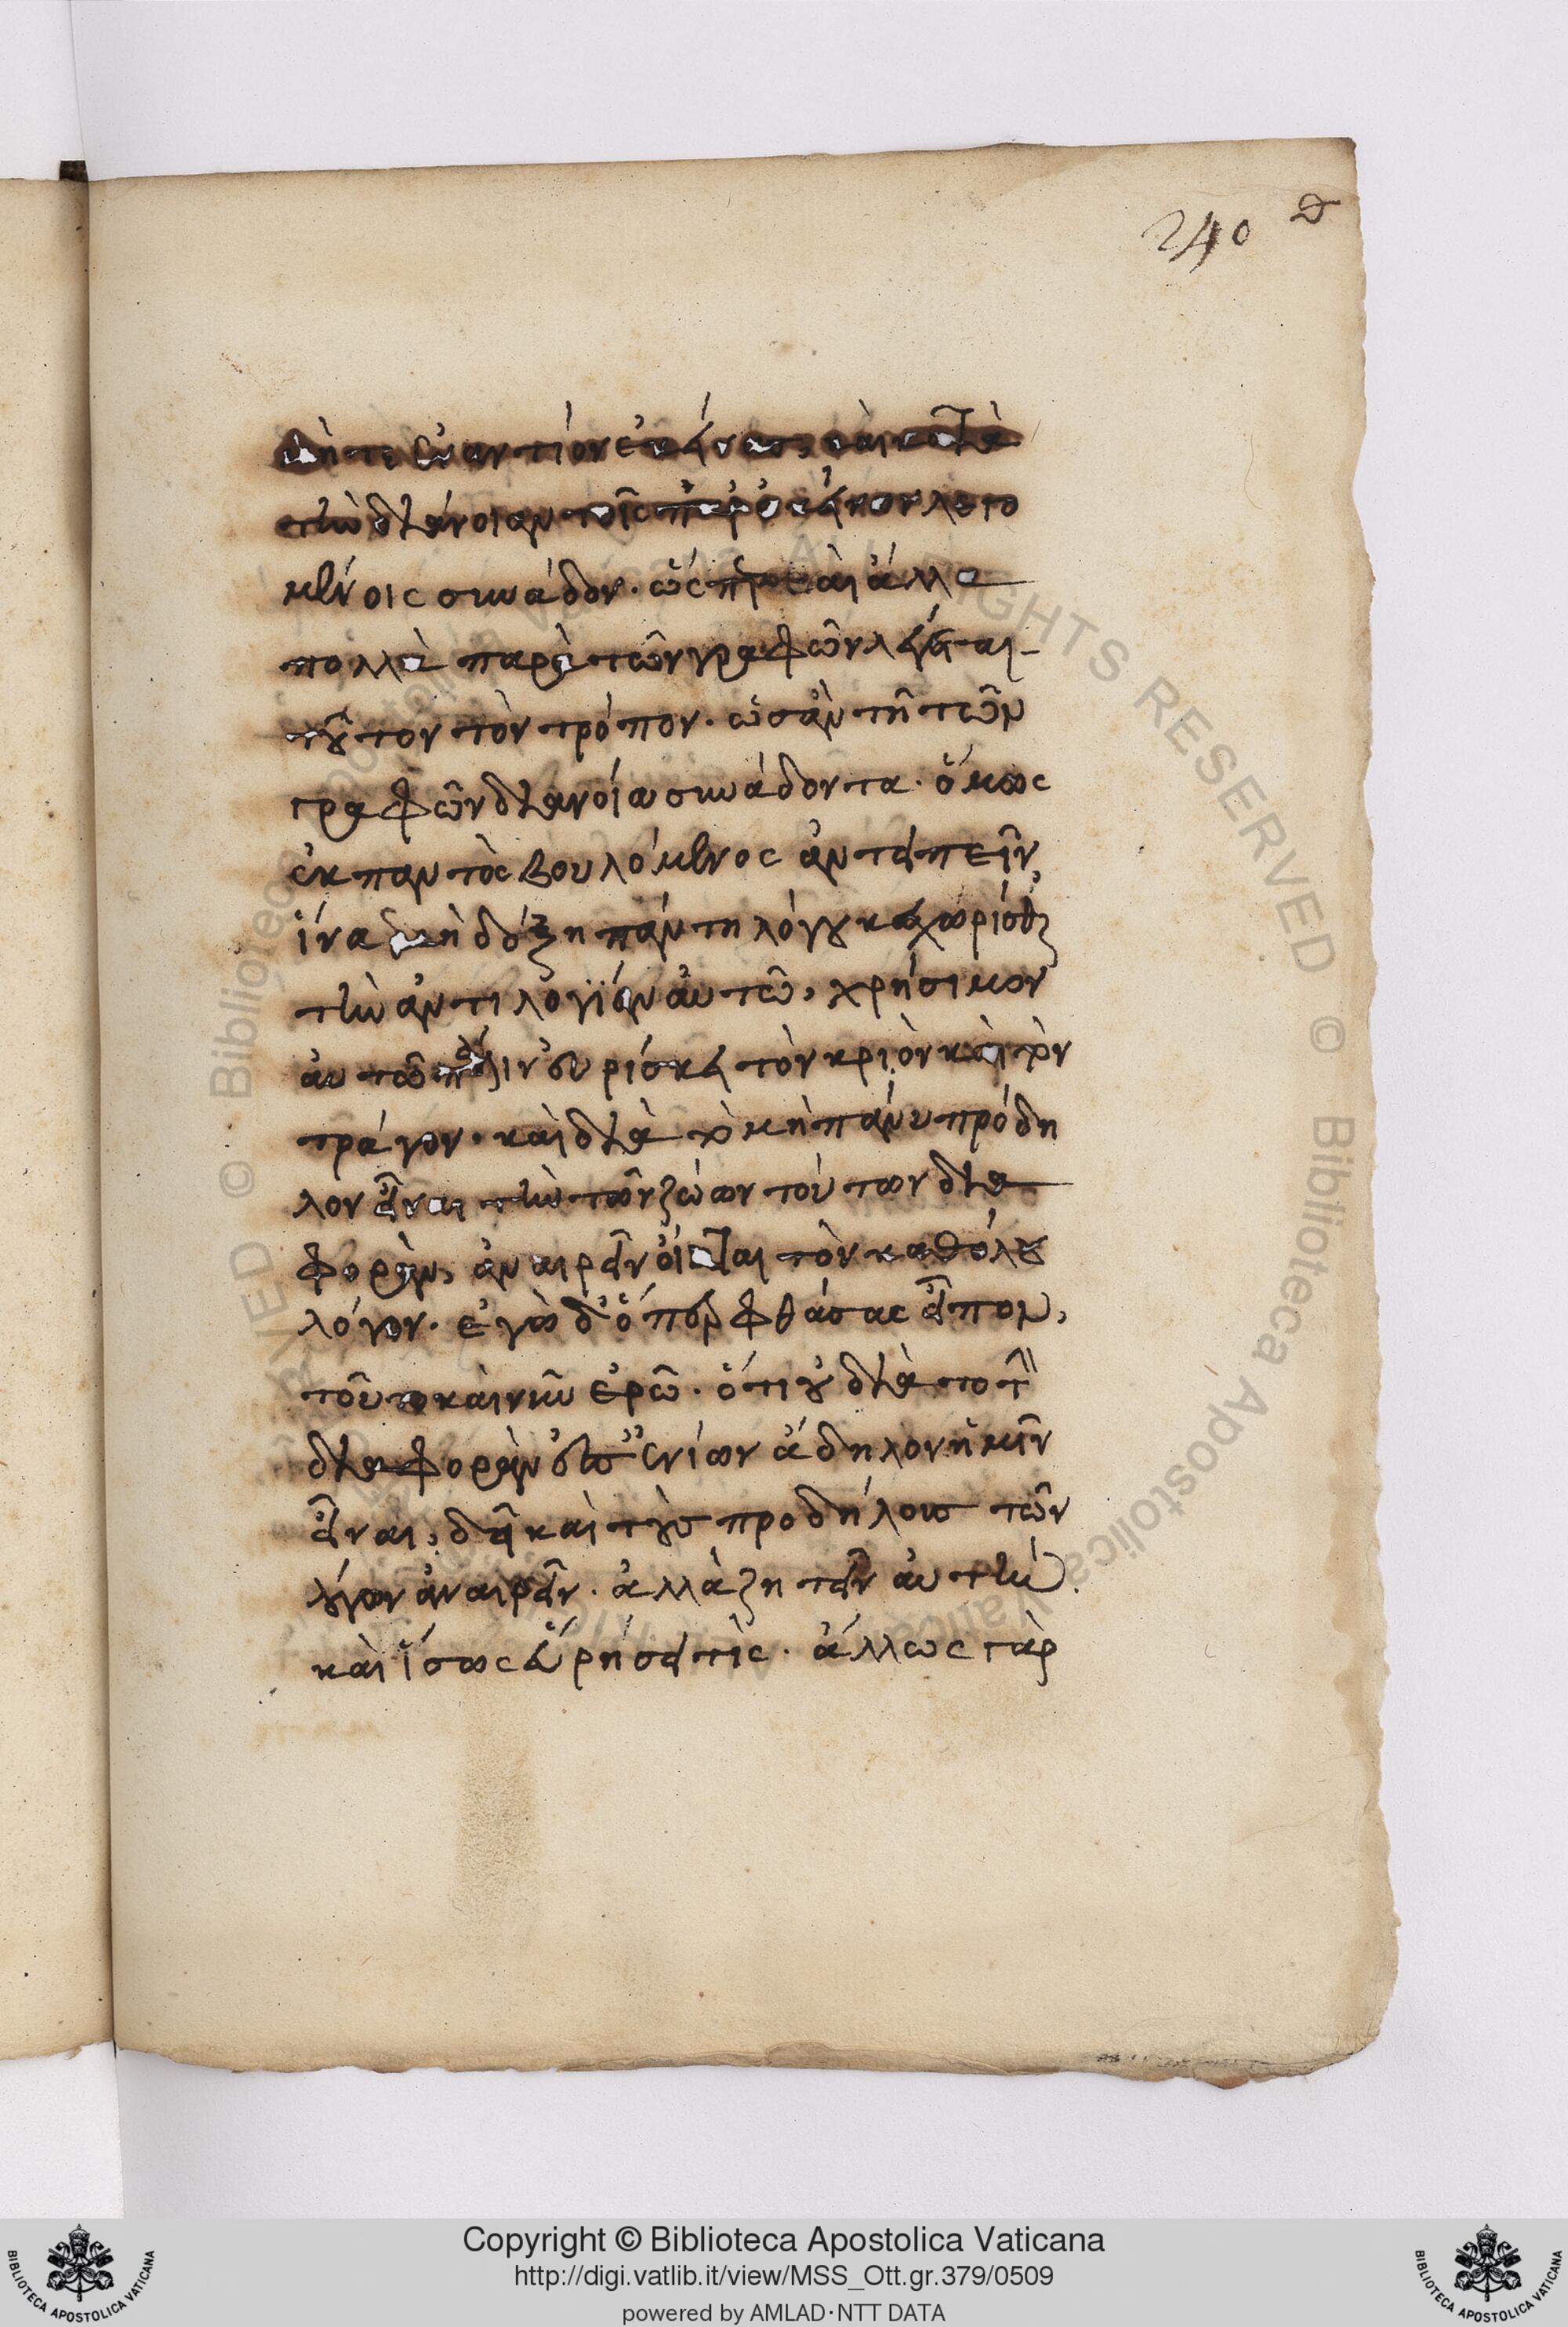 240
μήτε ἐναντίον ἐκείνας, καὶ κατὰ
τὴν διάνοιαν τοῖς περὶ ἐκεί λεγο
μένοις συνάδον. ὥσπερ καὶ ἄλλα
πολλὰ παρὰ τῶν γραφῶν λέγεται
τοῦτον τὸν τρόπον. ὡσὰν τῇ τῶν
γραφῶν διανοία συνάδοντα. ὅμως
ἐκ παντὸς βουλόμενος ἀντειπεῖν,
ἵνα μὴ δόξη πάντη λόγου κεχωρίσθαι
τὴν ἀντιλογίαν αὐτῶ, χρήσιμον
αὐτῶ πάλιν εὑρίσκει τὸν κριὸν καὶ τὸν
τράγον. καὶ διὰ τὸ μὴ πάνυ πρόδη
λον εἶναι τὴν τῶν ζώων τούτων δια
φορὰν, ἀναιρεῖν οἴεται τὸν καθόλου
λόγον. ἐγὼ δ' ὅπερ φθάσας εἶπον,
τοῦτο καὶ νῦν ἐρῶ. ὅτι οὐ διὰ τὸ τὴν
διαφορὰν ἐπ' ἐνίων ἄδηλον ἡμῖν
εἶναι, δεῖ καὶ τοὺς προδήλους τῶν
λόγων ἀναιρεῖν. ἀλλὰ ζητεῖν αὐτὴν.
καὶ ἴσως εὑρήσει τὶς. ἄλλως γὰρ
Copyright © Biblioteca Apostolica Vaticana
http://digi.vatlib.it/view/MSS_Ott.gr.379/0509
powered by AMLAD·NTT DATA
BIBLIOTECA APOSTOLICA VATICANA
BIBLIOTECA APOSTOLICA VATICANA